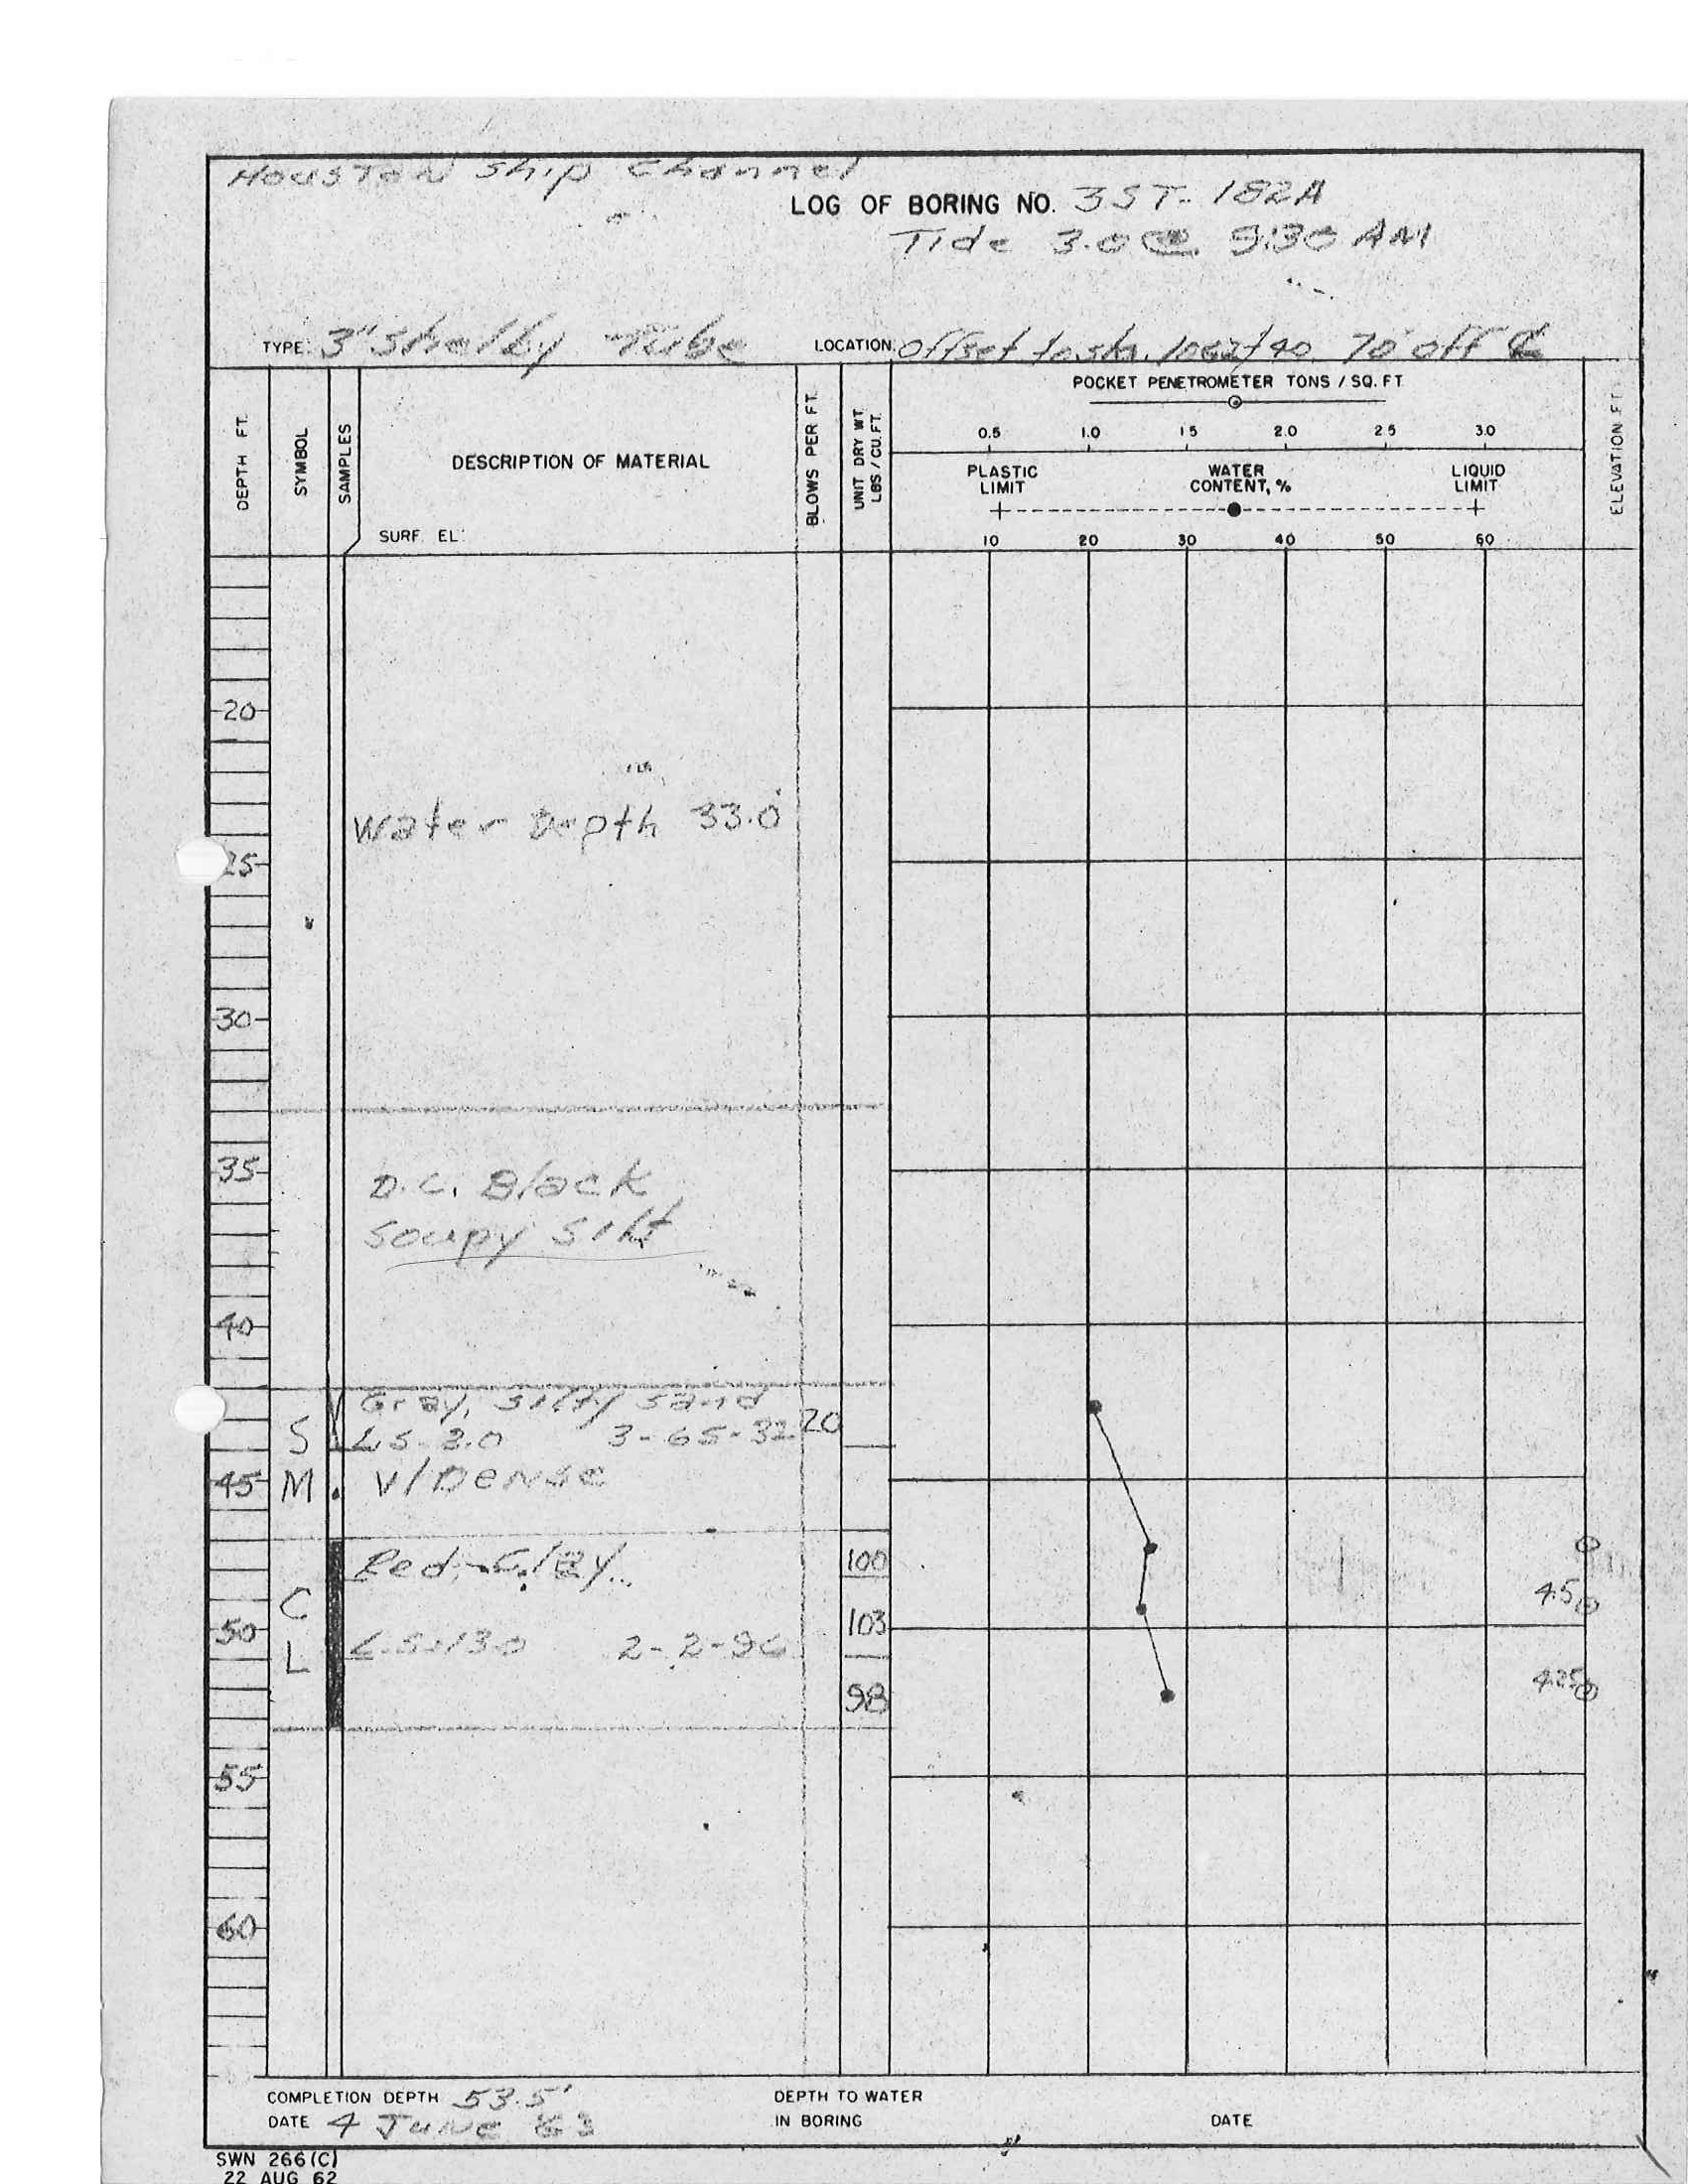 Houston Ship Channel
LOG OF BORING NO. 3ST-182A
Tide 3.0 @ 9:30 AM
TYPE: 3" Shelby Tube
LOCATION: Offset to sta. 1062+40 70' off ℄
DEPTH FT.
SYMBOL
SAMPLES
DESCRIPTION OF MATERIAL
SURF. EL:
BLOWS PER FT.
UNIT DRY WT.
LBS / CU. FT.
POCKET PENETROMETER TONS / SQ. FT.
0.5 1.0 1.5 2.0 2.5 3.0
PLASTIC LIMIT
WATER CONTENT, %
LIQUID LIMIT
10 20 30 40 50 60
ELEVATION FT.
20
Water Depth 33.0'
25
30
35
D.C. Black
Soupy Silt
40
Gray, silty sand
S L.S-3.0 3-65-32 20
45 M V/Dense
Red, Clay
100
C
4.5
50
103
L L.S-13.0 2-2-96
98
4.25
55
60
COMPLETION DEPTH 53.5'
DATE 4 June 63
DEPTH TO WATER
IN BORING
DATE
SWN 266 (C)
22 AUG 62